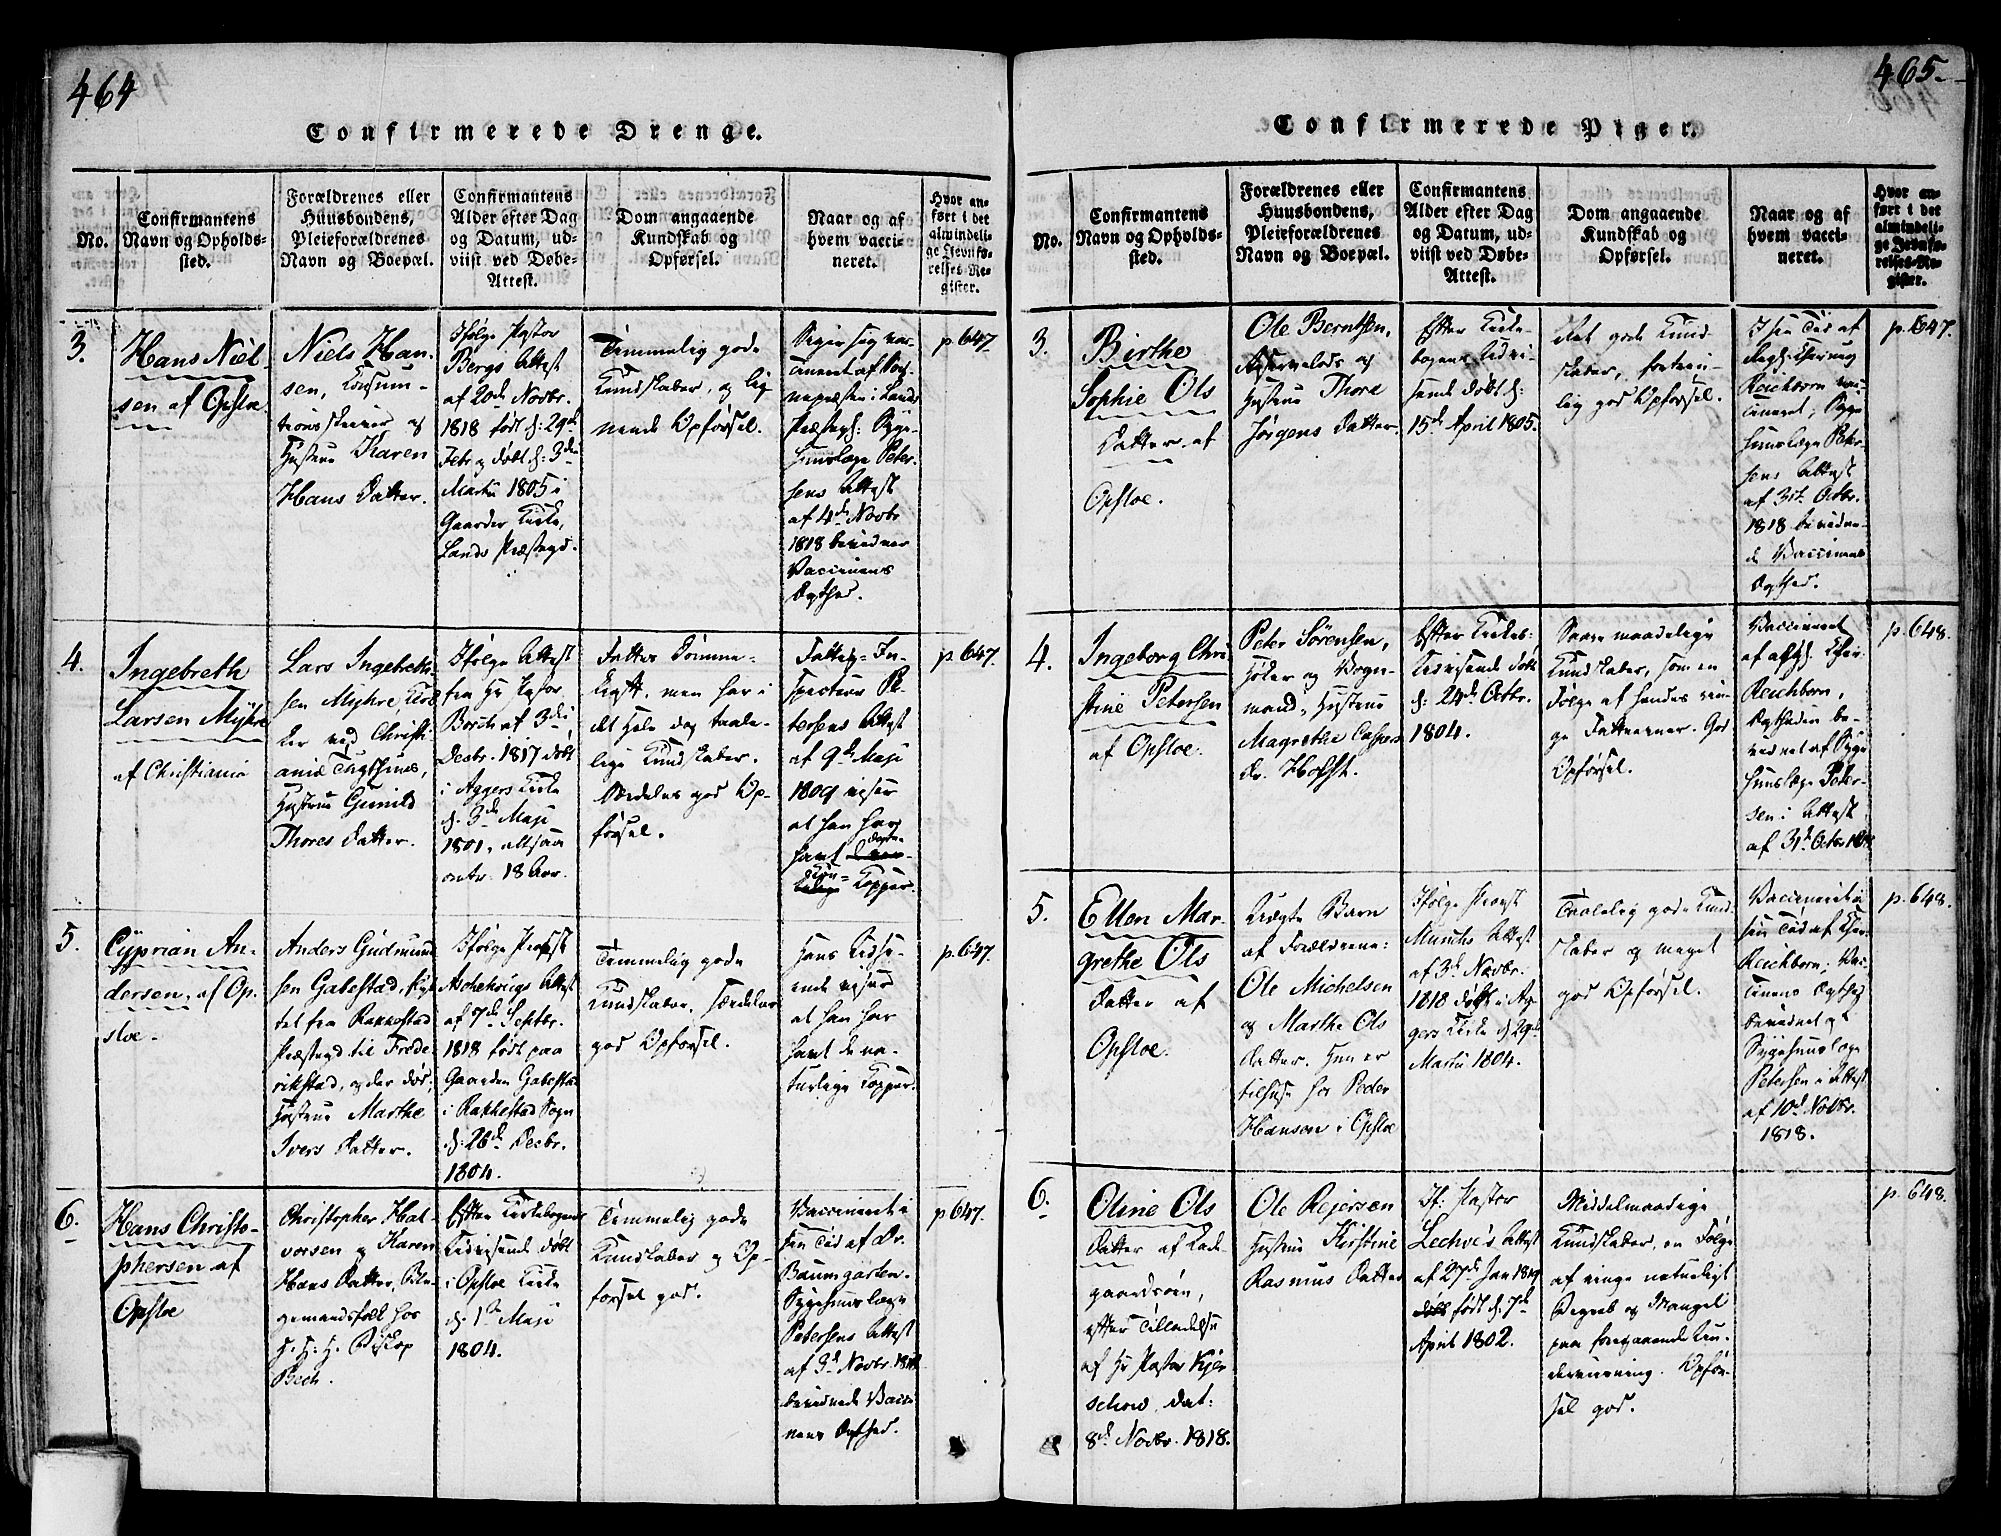 464
Confirmerede Drenge.
No.
Confirmantens
Navn og Opholds-
sted.
Forældrenes eller
Huusbondens,
Pleieforældrenes
Navn og Boepæl.
Confirmantens
Alder efter Dag
og Datum, ud-
viist ved Døbe-
Attest.
Dom angaaende
Kundskab og
Opførsel.
Naar og af
hvem vacci-
neret.
Hvor an-
ført i det
almindeli-
ge Jevnfø-
relses-Re-
gister.
3.
Hans Niel
sen af Opsloe
Niels Han-
sen, Consum-
tionsskriver og
Hustrue Karen
Hans Datter.
Ifølge Pastor
Bergs Attest
af 20de Novbr.
1818 født d: 29de
Febr og døbt d: 3die
Martii 1805 i
Gaarder Kirke,
Lands Præstegd.
Temmelig gode
Kundskaber, og lig
nende Opførsel.
af 4de Novbr
1818 bevidner
Vaccinens
Ægthed.
p 647.
4.
Ingebreth
Larsen Myhre
af Christiania
Lars Ingebreth
sen Myhre,
ved Christi
ania Tugthuus,
Hustrue Gunild
Thores Datter.
Ifølge Attest
fra Hr Pastor
Borch af 3die
Decbr. 1817 døbt
i Aggers Kirke
d. 3de Maji
1801, altsaa
omtr. 18 Aar.
men har i
det Hele dog taale-
lige Kundskaber.
Særdeles god Op-
førsel.
Fattig-In-
specteur Pe-
tersens Attest
af 9de Maji
1809 viser
at han har
havt
Kopper.
p 647.
5.
Cyprian An-
dersen, af Op-
sloe.
Anders Gudmund
sen Gabestad, flyt
tet fra Rakkestad
Præstegd til Frede
rikstad, og der død;
Hustrue Marthe
Ivers Datter.
Ifølge Provst
Aschehougs Attest
af 7de Septbr.
1818 født paa
Gaarden Gabestad
i Rakkestad Sogn
d: 26de Decbr.
1804.
Temmelig gode
Kundskaber, særdeles
god Opførsel.
Hans Udse-
ende viser
at han har
havt de na-
turlige Kopper.
p. 647.
6.
Hans Christo-
phersen af
Opsloe
Christopher Hal-
vorsen og Karen
Hans Datter,
hos
H. H. H. Biskop
Bech.
Efter Kirkebogens
Udvisende døbt
i Opsloe Kirke
d. 1ste Maji
1804.
Temmelig gode
Kundskaber og Op-
førsel god.
Vaccineret i
sin Tid af Dr.
Baumgarten.
Sygehuuslæge
Petersens Attest
af 3de Novbr. 1818
bevidner Vacci
nens Ægthed.
p 647.
465.
Confirmerede Piger.
No.
Confirmantens
Navn og Opholds-
sted.
Forældrenes eller
Huusbondens,
Pleieforældrenes
Navn og Boepæl.
Confirmantens
Alder efter Dag
og Datum, ud-
viist ved Døbe-
Attest.
Dom angaaende
Kundskab og
Opførsel.
Naar og af
hvem vacci-
neret.
Hvor an-
ført i det
almindeli-
ge Jevnfø-
relses-Re-
gister.
3.
Birthe
Sophie Ols
Datter af
Opsloe.
Ole Berntsen,
og
Hustrue Thore
Jørgens Datter.
Efter Kirke-
bogens Udvi-
sende døbt d:
15de April 1805.
Ret gode Kund
skaber, fortrin-
lig god Opførsel.
I sin Tid af
Reichborn vac-
cineret; Syge
huuslæge Peter-
sens Attest
af 31te Octbr.
1818 bevidne-
de Vaccinens
Ægthed.
p. 647.
4.
Ingeborg Chri
stine Petersen
af Opsloe.
Peter Sørensen,
Høker og Vogn-
mand, Hustrue
Magrethe Caspers
Dr. Holst.
Efter Kirkeb:
Udvisende døbt
d: 24de Octbr.
1804.
Saare maadelige
Kundskaber, som en
Følge af hendes rin-
ge Fatteevner. God
Opførsel.
Vaccineret
Reichborn,
Ægtheden be-
vidnet af Syge
huuslæge Peter-
sen i Attest
af 31te Octbr 1818
p. 648.
5.
Ellen Mar-
grethe Ols
Datter af
Opsloe.
Uægte Barn
af Forældrene:
Ole Michelsen
og Marthe Ols
Datter. Hun er
tilhuse hos Peder
Hansen i Opsloe
Ifølge Provst
Munchs Attest
af 3de Novbr.
1818 døbt i Ag-
gers Kirke d 29de
Martii 1804.
Taalelig gode Kund-
skaber og meget
god Opførsel.
Vaccineret i
sin Tid af
Reichborn; Vac-
cinens Ægthed
bevidnet af
Sygehuuslæge
Petersen i Attest
af 10de Novbr.
1818.
p. 648.
6.
Oline Ols
Datter af Lade-
gaardsøen,
efter Tilladelse
af Hr Pastor Kjer
schow dat:
8de Novbr. 1818.
Ole Rejersen
Hustrue Kirstine
Rasmus Datter
If. Pastor
Lechve's Attest
af 27de Jan 1819
født d. 7de
April 1802.
Middelmaadige
Kundskaber, en Følge
af ringe naturligt
Begreb og Mangel
paa foregaaende Un-
derviisning. Opfør-
sel god.
p. 648.